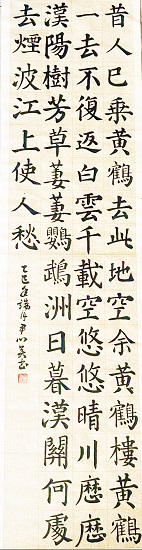 昔人已乘黃鶴去此地空余黃鶴樓黃鶴
一去不復返白雲千載空悠悠晴川歷歷
漢陽樹芳草萋萋鸚鵡洲日暮漢關何處
去煙波江上使人愁